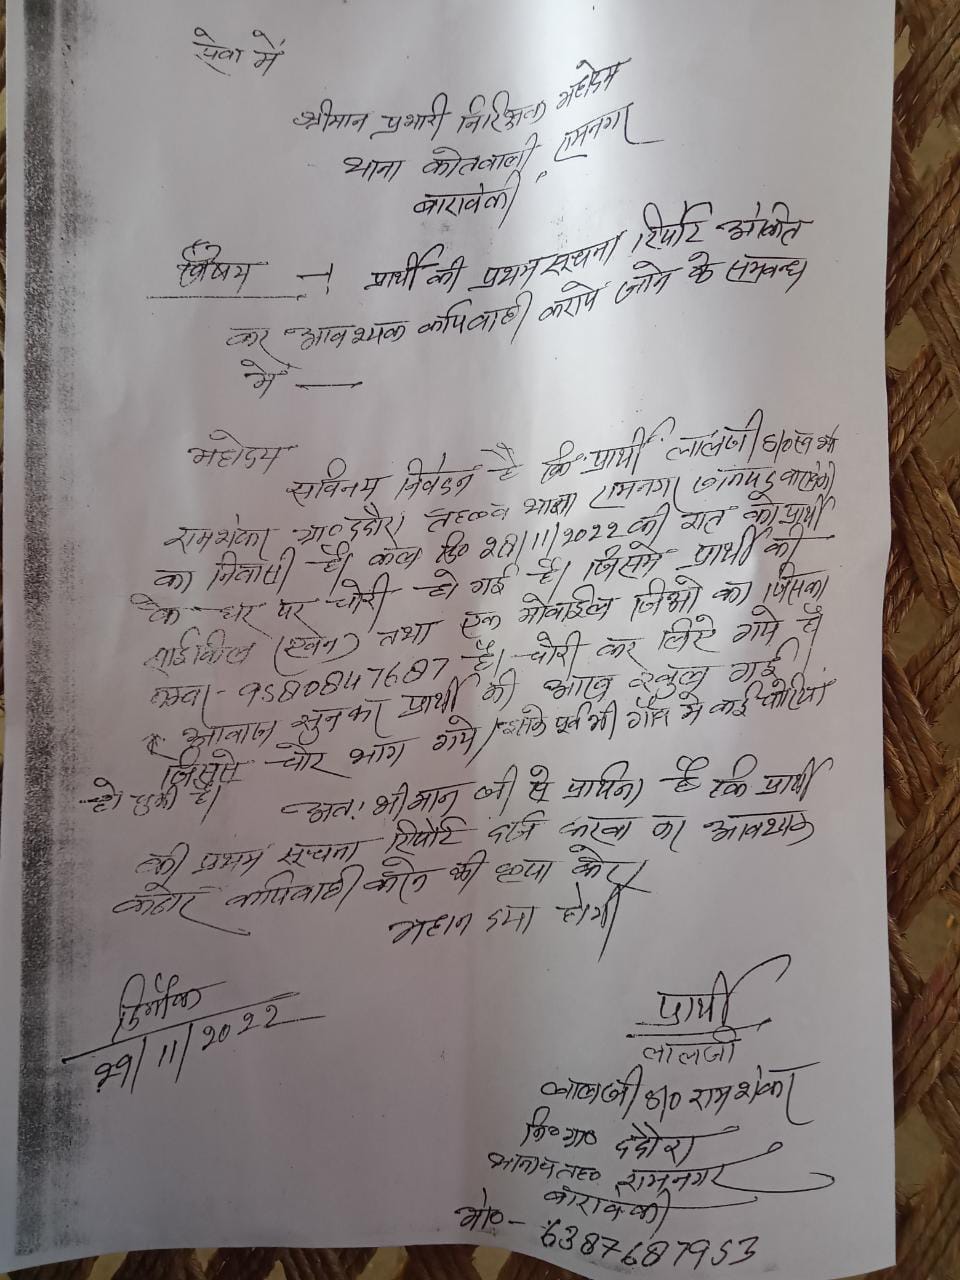 सेवा में
श्रीमान प्रभारी निरिक्षक महोदय
थाना कोतवाली रामनगर
बाराबंकी
विषय -: प्रार्थी की प्रथम सूचना रिपोर्ट अंकित
कर आवश्यक कार्यवाही कराये जाने के सम्बन्ध
में —
महोदय
सविनय निवेदन है कि प्रार्थी लालजी S/O स्व श्री
रामशंकर ग्रा० ददौरा तह० व थाना रामनगर जनपद बाराबंकी
का निवासी है। कल दि० 28/11/2022 की रात को प्रार्थी
के घर पर चोरी हो गई है। जिसमे प्रार्थी की
साईकिल (एवन) तथा एक मोबाईल जिओ का जिसका
नम्बर - 9580847687 है। चोरी कर लिए गये है
आवाज सुनकर प्रार्थी की आख खुल गई
जिससे चोर भाग गये। इसके पूर्व भी गाँव मे कई चोरिया
हो चुकी है।
अतः श्रीमान जी से प्रार्थना है कि प्रार्थी
की प्रथम सूचना रिपोर्ट दर्ज करवा कर आवश्यक
कठोर कार्यवाही करने की कृपा करें।
महान दया होगी
दिनाँक
29/11/2022
प्रार्थी
लालजी
लालजी S/O रामशंकर
नि० ग्रा० ददौरा
थाना व तह० रामनगर
बाराबंकी
मो० - 6387687953